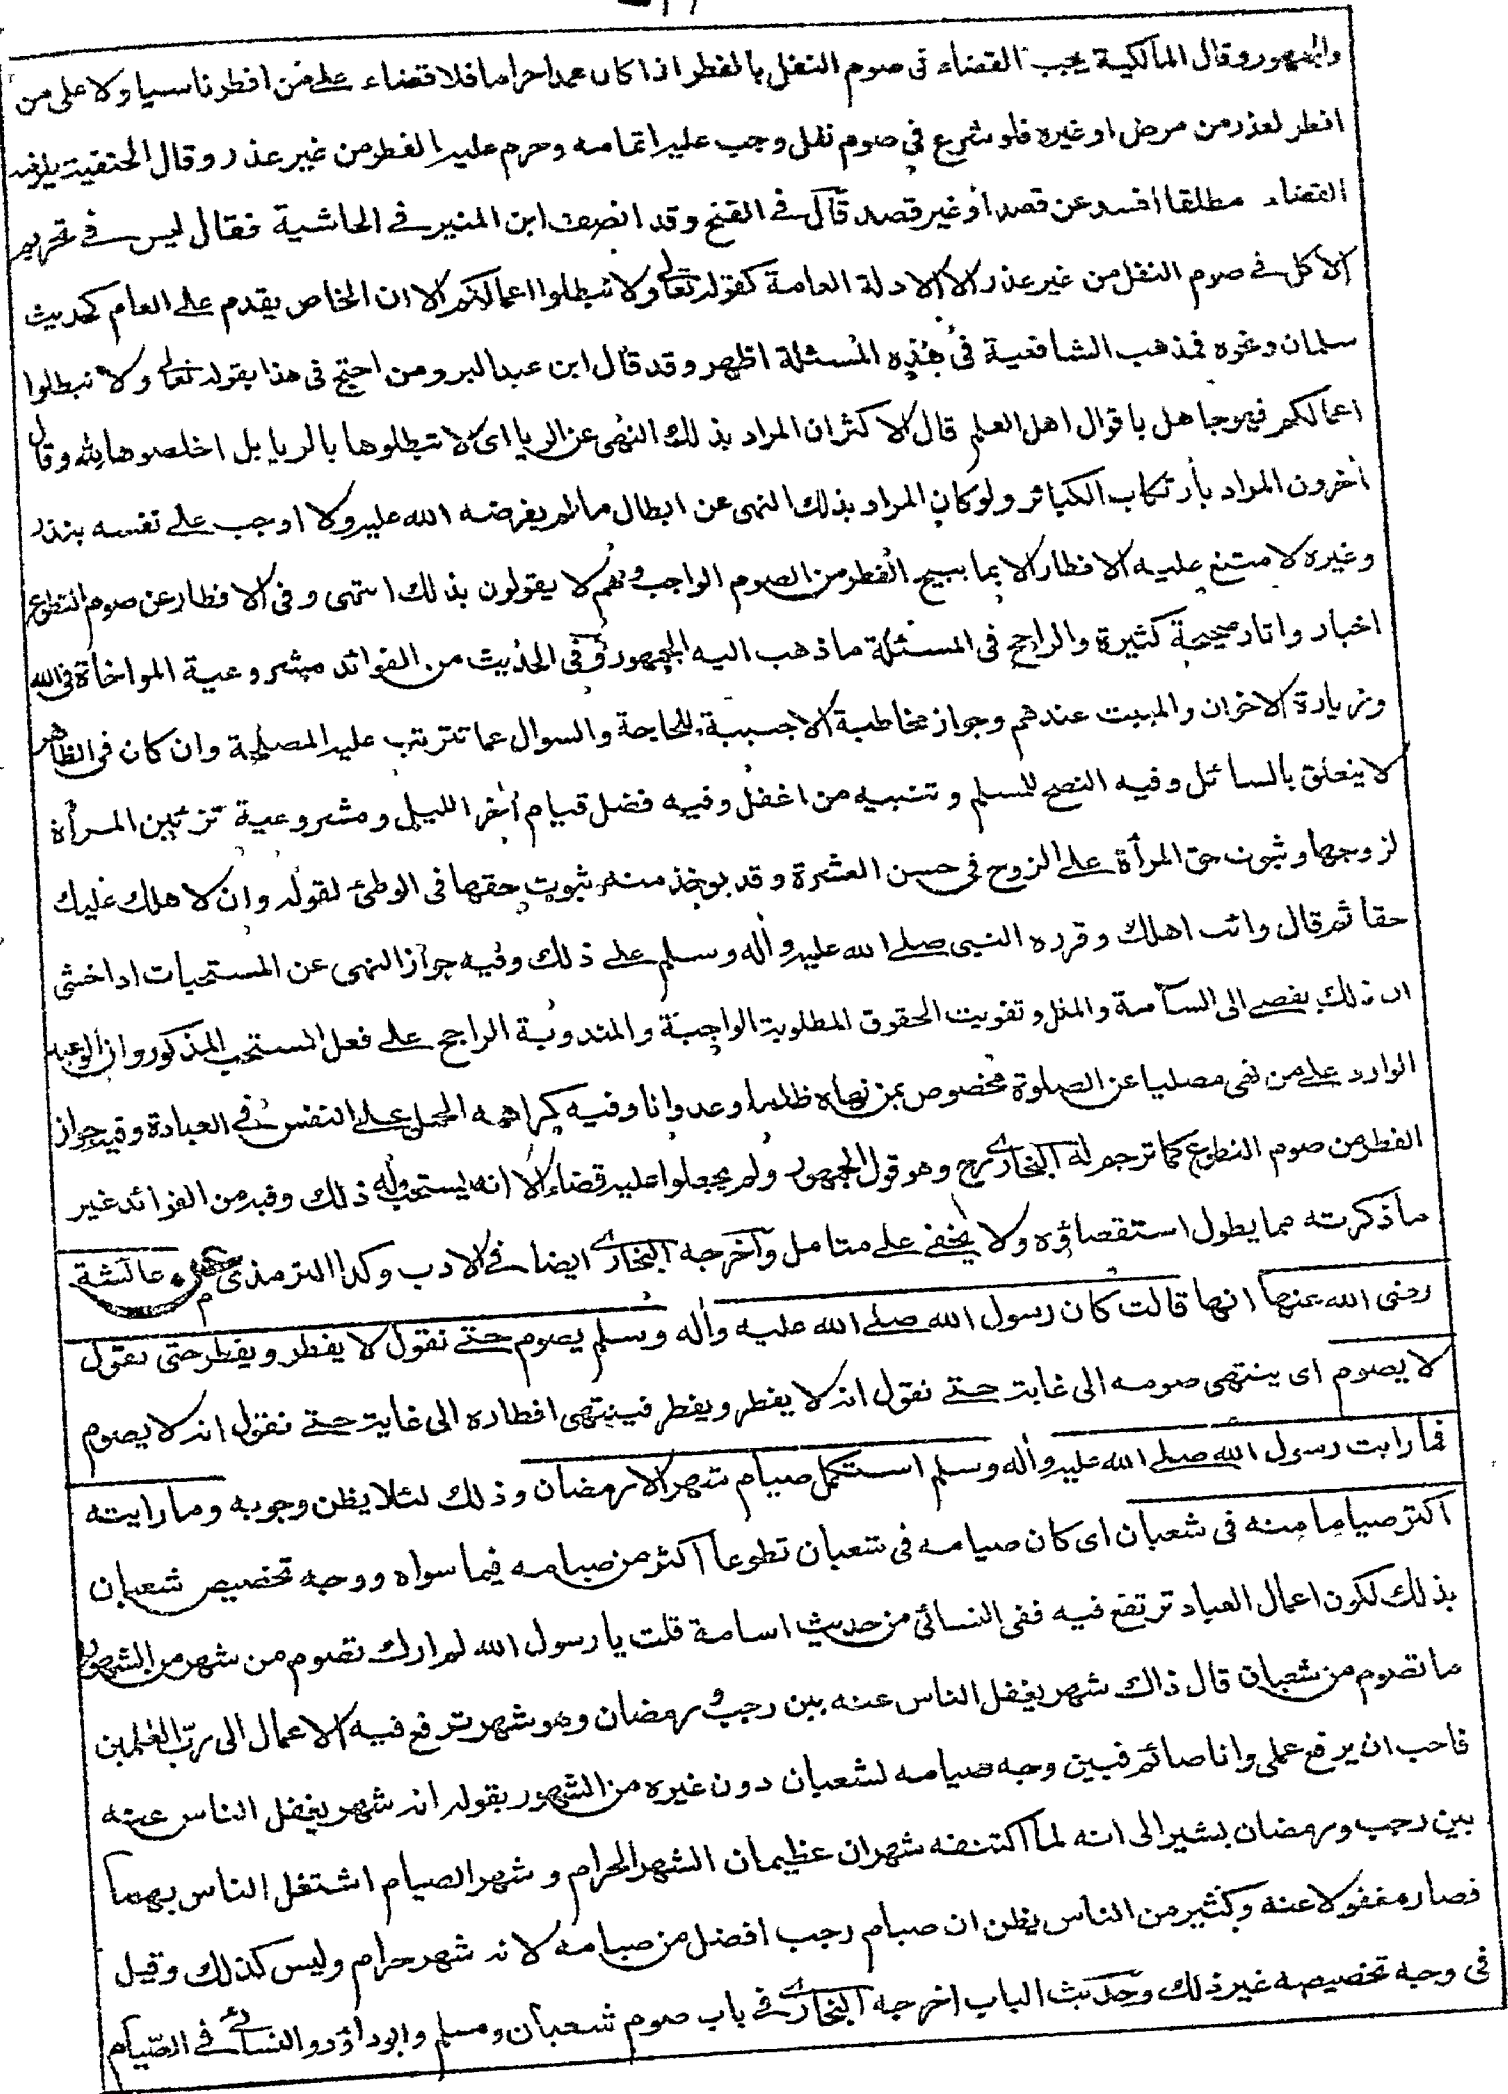 والجمهور وقال المالكية يجب القضاء فى صوم النفل بالفطر اذا كان عمدا حراما فلا قضاء على من افطر ناسيا ولا على من
افطر لعذر من مرض او غيره فلو شرع فى صوم نفل وجب عليه اتمامه وحرم عليه الفطر من غير عذر وقال الحنفية يلزمه
القضاء مطلقا افسد عن قصد او غير قصد قال فى الفتح وقد انصف ابن المنير فى الحاشية فقال ليس فى تحريم
الاكل فى صوم النفل من غير عذر الا الادلة العامة كقوله تعالى ولا تبطلوا اعمالكم الا ان الخاص يقدم على العام كحديث
سلمان ونحوه فمذهب الشافعية فى هذه المسئلة اظهر وقد قال ابن عبد البر ومن احتج فى هذا بقوله تعالى ولا تبطلوا
اعمالكم فهو جاهل باقوال اهل العلم قال الاكثر ان المراد بذلك النهى عن الريا اى لا تبطلوها بالريا بل اخلصوها لله وقال
أخرون المراد بأرتكاب الكبائر ولو كان المراد بذلك النهى عن ابطال مالم يفرضه الله عليه ولا اوجب على نفسه بنذر
وغيره لامتنع عليه الافطار الا بما يبيح الفطر من الصوم الواجب وهم لا يقولون بذلك انتهى وفى الافطار عن صوم التطوع
اخبار واثار صحيحة كثيرة والراجح فى المسئلة ما ذهب اليه الجمهور وفى الحديث من الفوائد مشروعية المواخاة فى الله
وزيارة الاخوان والمبيت عندهم وجواز مخاطبة الاجنبية للحاجة والسوال عما تترتب عليه المصلحة وان كان فى الظاهر
لا يتعلق بالسائل وفيه النصح للمسلم وتنبيه من اغفل وفيه فضل قيام أخر الليل ومشروعية تزيين المرأة
لزوجها وثبوت حق المرأة على الزوج فى حسن العشرة وقد يوخذ منه ثبوت حقها فى الوطئ لقوله وان لاهلك عليك
حقا ثم قال وائت اهلك وقرره النبى صلے الله عليه وأله وسلم على ذلك وفيه جواز النهى عن المستحبات اذا خشى
ان ذلك يفضى الى السآمة والملل وتفويت الحقوق المطلوبة الواجبة والمندوبة الراجح على فعل المستحب المذكور وان الوعيد
الوارد على من نهى مصليا عن الصلوة مخصوص بمن نهاه ظلما وعدوانا وفيه كراهة الحمل على النفس فى العبادة وفيه جواز
الفطر من صوم التطوع كما ترجم له البخارى رح وهو قول الجمهور ولم يجعلوا عليه قضاء الا انه يستحب له ذلك وفيه من الفوائد غير
ما ذكرته مما يطول استقصاؤه ولا يخفى على متامل وأخرجه البخارى ايضا فى الادب وكذا الترمذى عن عائشة
رضى الله عنها انها قالت كان رسول الله صلے الله عليه وأله وسلم يصوم حتى نقول لا يفطر ويفطر حتى نقول
لا يصوم اى ينتهى صومه الى غاية حتى نقول انه لا يفطر ويفطر فينتهى افطاره الى غاية حتى نقول انه لا يصوم
فما رايت رسول الله صلے الله عليه وأله وسلم استكمل صيام شهر الا رمضان وذلك لئلا يظن وجوبه وما رايته
اكثر صياما منه فى شعبان اى كان صيامه فى شعبان تطوعا اكثر من صيامه فيما سواه ووجه تخصيص شعبان
بذلك لكون اعمال العباد ترتفع فيه ففى النسائى من حديث اسامة قلت يا رسول الله لم ارك تصوم من شهر من الشهور
ما تصوم من شعبان قال ذاك شهر يغفل الناس عنه بين رجب ورمضان وهو شهر ترفع فيه الاعمال الى رب العلمين
فاحب ان يرفع عملى وانا صائم فبين وجه صيامه لشعبان دون غيره من الشهور بقوله انه شهر يغفل الناس عنه
بين رجب ورمضان يشير الى انه لما اكتنفه شهران عظيمان الشهر الحرام وشهر الصيام اشتغل الناس بهما
فصار مغفولا عنه وكثير من الناس يظن ان صيام رجب افضل من صيامه لانه شهر حرام وليس كذلك وقيل
فى وجه تخصيصه غير ذلك وحديث الباب اخرجه البخارى فى باب صوم شعبان ومسلم وابو داؤد والنسائى فى الصيام